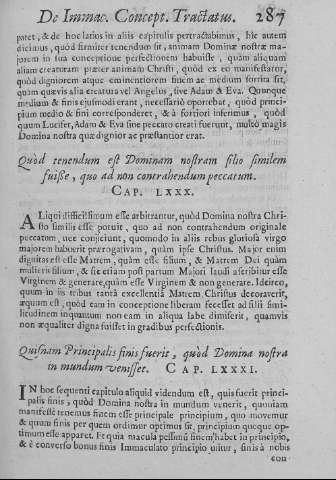 De Immac. Concept. Tractatus. 287
paret, & de hoc latiùs in aliis capitulis pertractabimus, hic autem
dicimus, quòd firmiter tenendum sit, animam Dominæ nostræ ma-
jorem in sua conceptione perfectionem habuisse, quàm aliquam
aliam creaturam præter animam Christi, quòd ex eo manifestatur,
quòd digniorem atque eminentiorem finem ac medium sortita sit,
quàm quævis alia creatura vel Angelus, sive Adam & Eva. Quumque
medium & finis ejusmodi erant, necessariò oportebat, quòd princi-
pium medio & fini corresponderet, & à fortiori inferimus, quòd
quum Lucifer, Adam & Eva sine peccato creati fuerunt, multò magis
Domina nostra quæ dignior ac præstantior erat.
Quòd tenendum est Dominam nostram filio similem
fuisse, quo ad non contrahendum peccatum.
CAP. LXXX.
ALiqui difficillimum esse arbitrantur, quòd Domina nostra Chri-
sto similis esse potuit, quo ad non contrahendum originale
peccatum, nec conjiciunt, quomodo in aliis rebus gloriosa virgo
majorem habuerit prærogativam, quàm ipse Christus. Major enim
dignitas est esse Matrem, quàm esse filium, & Matrem Dei quàm
mulieris filium, & sic etiam post partum Majori laudi ascribitur esse
Virginem & generare, quàm esse Virginem & non generare. Idcirco,
quum in iis rebus tantâ excellentiâ Matrem Christus decoraverit,
æquum est, quòd eam in conceptione liberam fecesset ad filii simi-
litudinem inquantum non eam in aliqua labe dimiserit, quamvis
non æqualiter digna fuisset in gradibus perfectionis.
Quisnam Principalis finis fuerit, quòd Domina nostra
in mundum venisset. CAP. LXXXI.
IN hoc sequenti capitulo aliquid videndum est, quis fuerit princi-
palis finis, quòd Domina nostra in mundum venerit, quoniam
manifestè tenemus finem esse principale principium, quo movemur
& quum finis per quem ordimur optimus sit, principium quoque op-
timum esse apparet. Et quia macula pessimũ finem habet in principio,
& è converso bonus finis Immaculato principio uititur, finis à nobis
con-